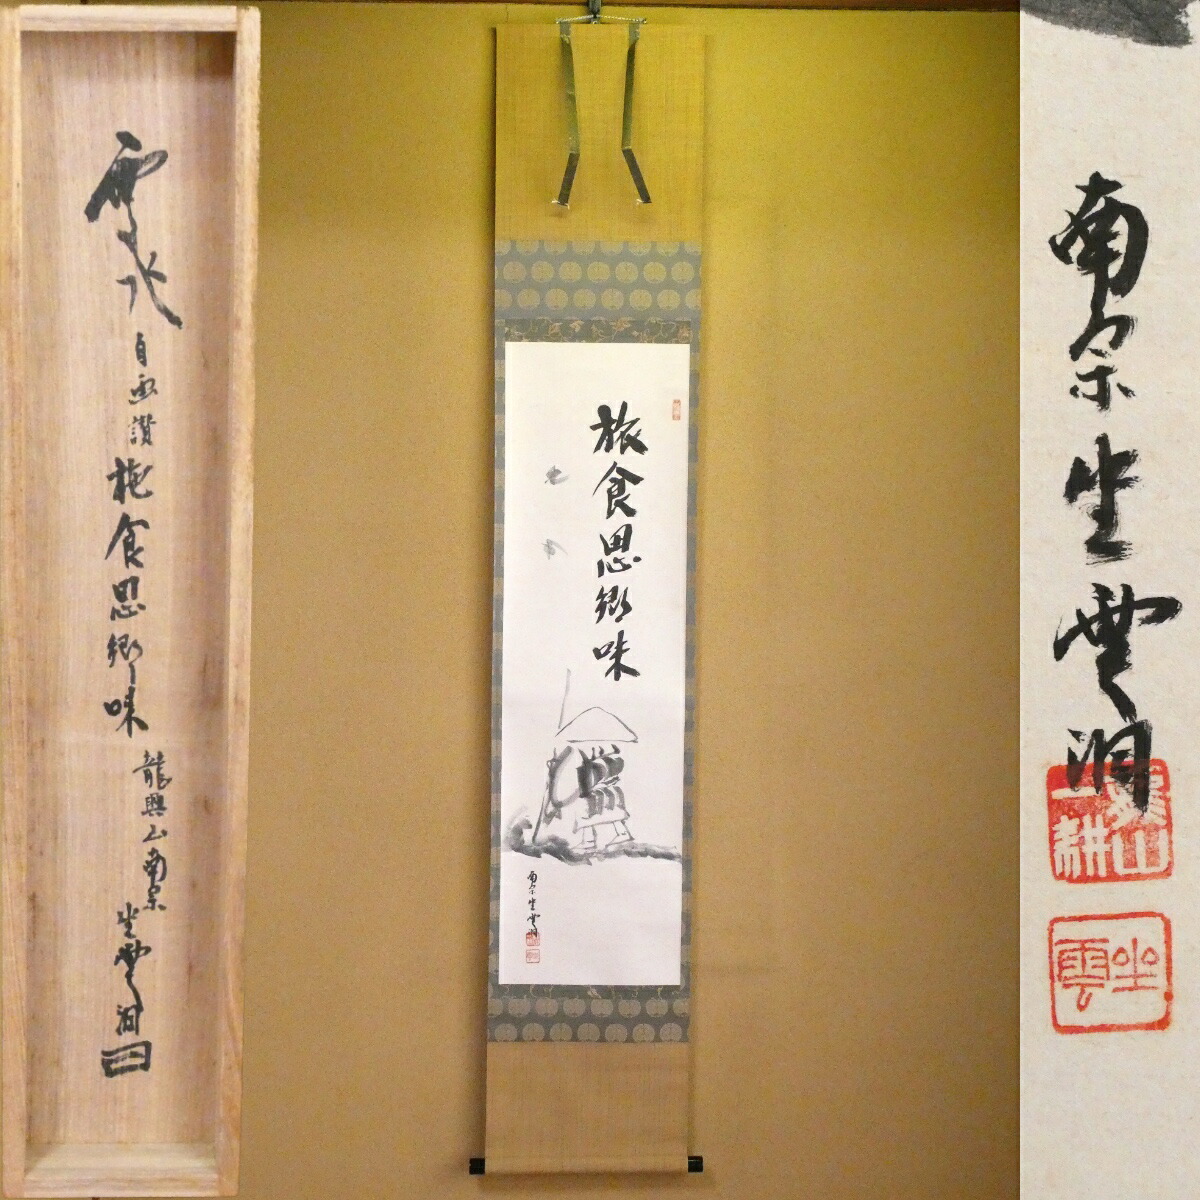 雲水
自画讃
旅食思郷味
龍興山南宗
坐雲洞
旅食思郷味
南宗坐雲洞
南宗坐雲洞
一耕
坐雲